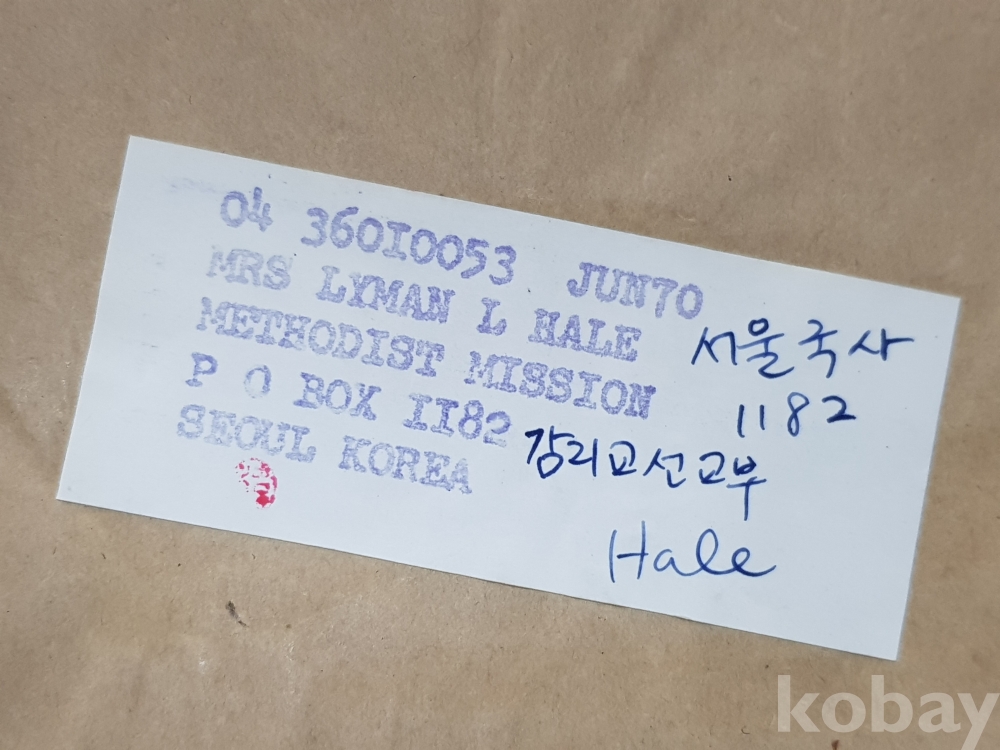 04 360I0053 JUN70
MRS LYMAN L HALE
METHODIST MISSION
P O BOX II82
SEOUL KOREA
서울국사
1182
감리교선교부
Hale
kobay